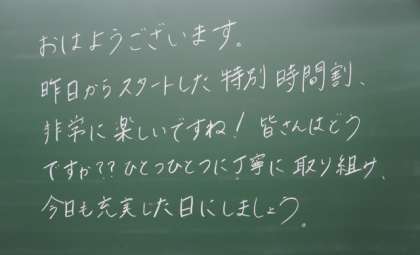 おはようございます。
昨日からスタートした特別時間割、
非常に楽しいですね！皆さんはどう
ですか？？ひとつひとつに丁寧に取り組み、
今日も充実した日にしましょう。